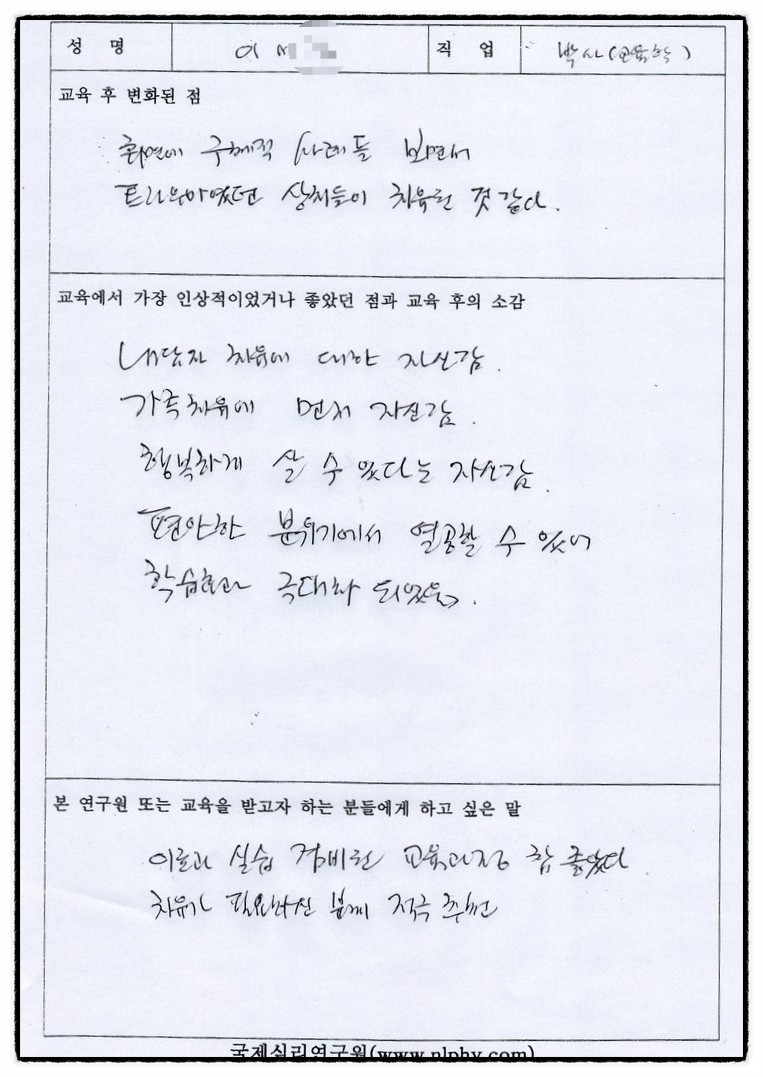 성 명 이 직 업 박사(교육학)
교육 후 변화된 점
화면에 구체적 사례들 보면서
트라우마였던 상처들이 치유된 것 같다.
교육에서 가장 인상적이었거나 좋았던 점과 교육 후의 소감
내담자 치유에 대한 자신감.
가족치유에 먼저 자신감.
행복하게 살 수 있다는 자신감.
편안한 분위기에서 열공할 수 있어
학습효과 극대화 되었음.
본 연구원 또는 교육을 받고자 하는 분들에게 하고 싶은 말
이론과 실습 겸비된 교육과정 참 좋았다
치유가 필요하신 분께 적극 추천
국제심리연구원(www.nlphy.com)